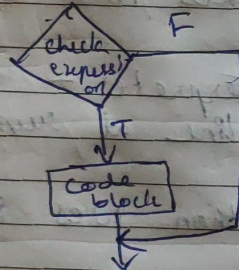 F
check
express
on
T
code
block